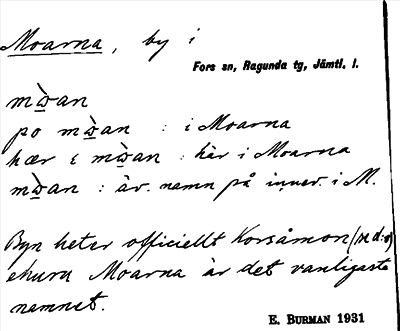 Moarna, by i
Fors sn, Ragunda tg, Jämtl. l.
mɷ̠̀an
po mɷ̠̀an : i Moarna
hær i mɷ̠̀an : här i Moarna
mɷ̠̀an : äv. namn på inner. i M.
Byn heter officiellt Korsåmon
ehuru Moarna är det vanligaste
namnet.
E. BURMAN 1931